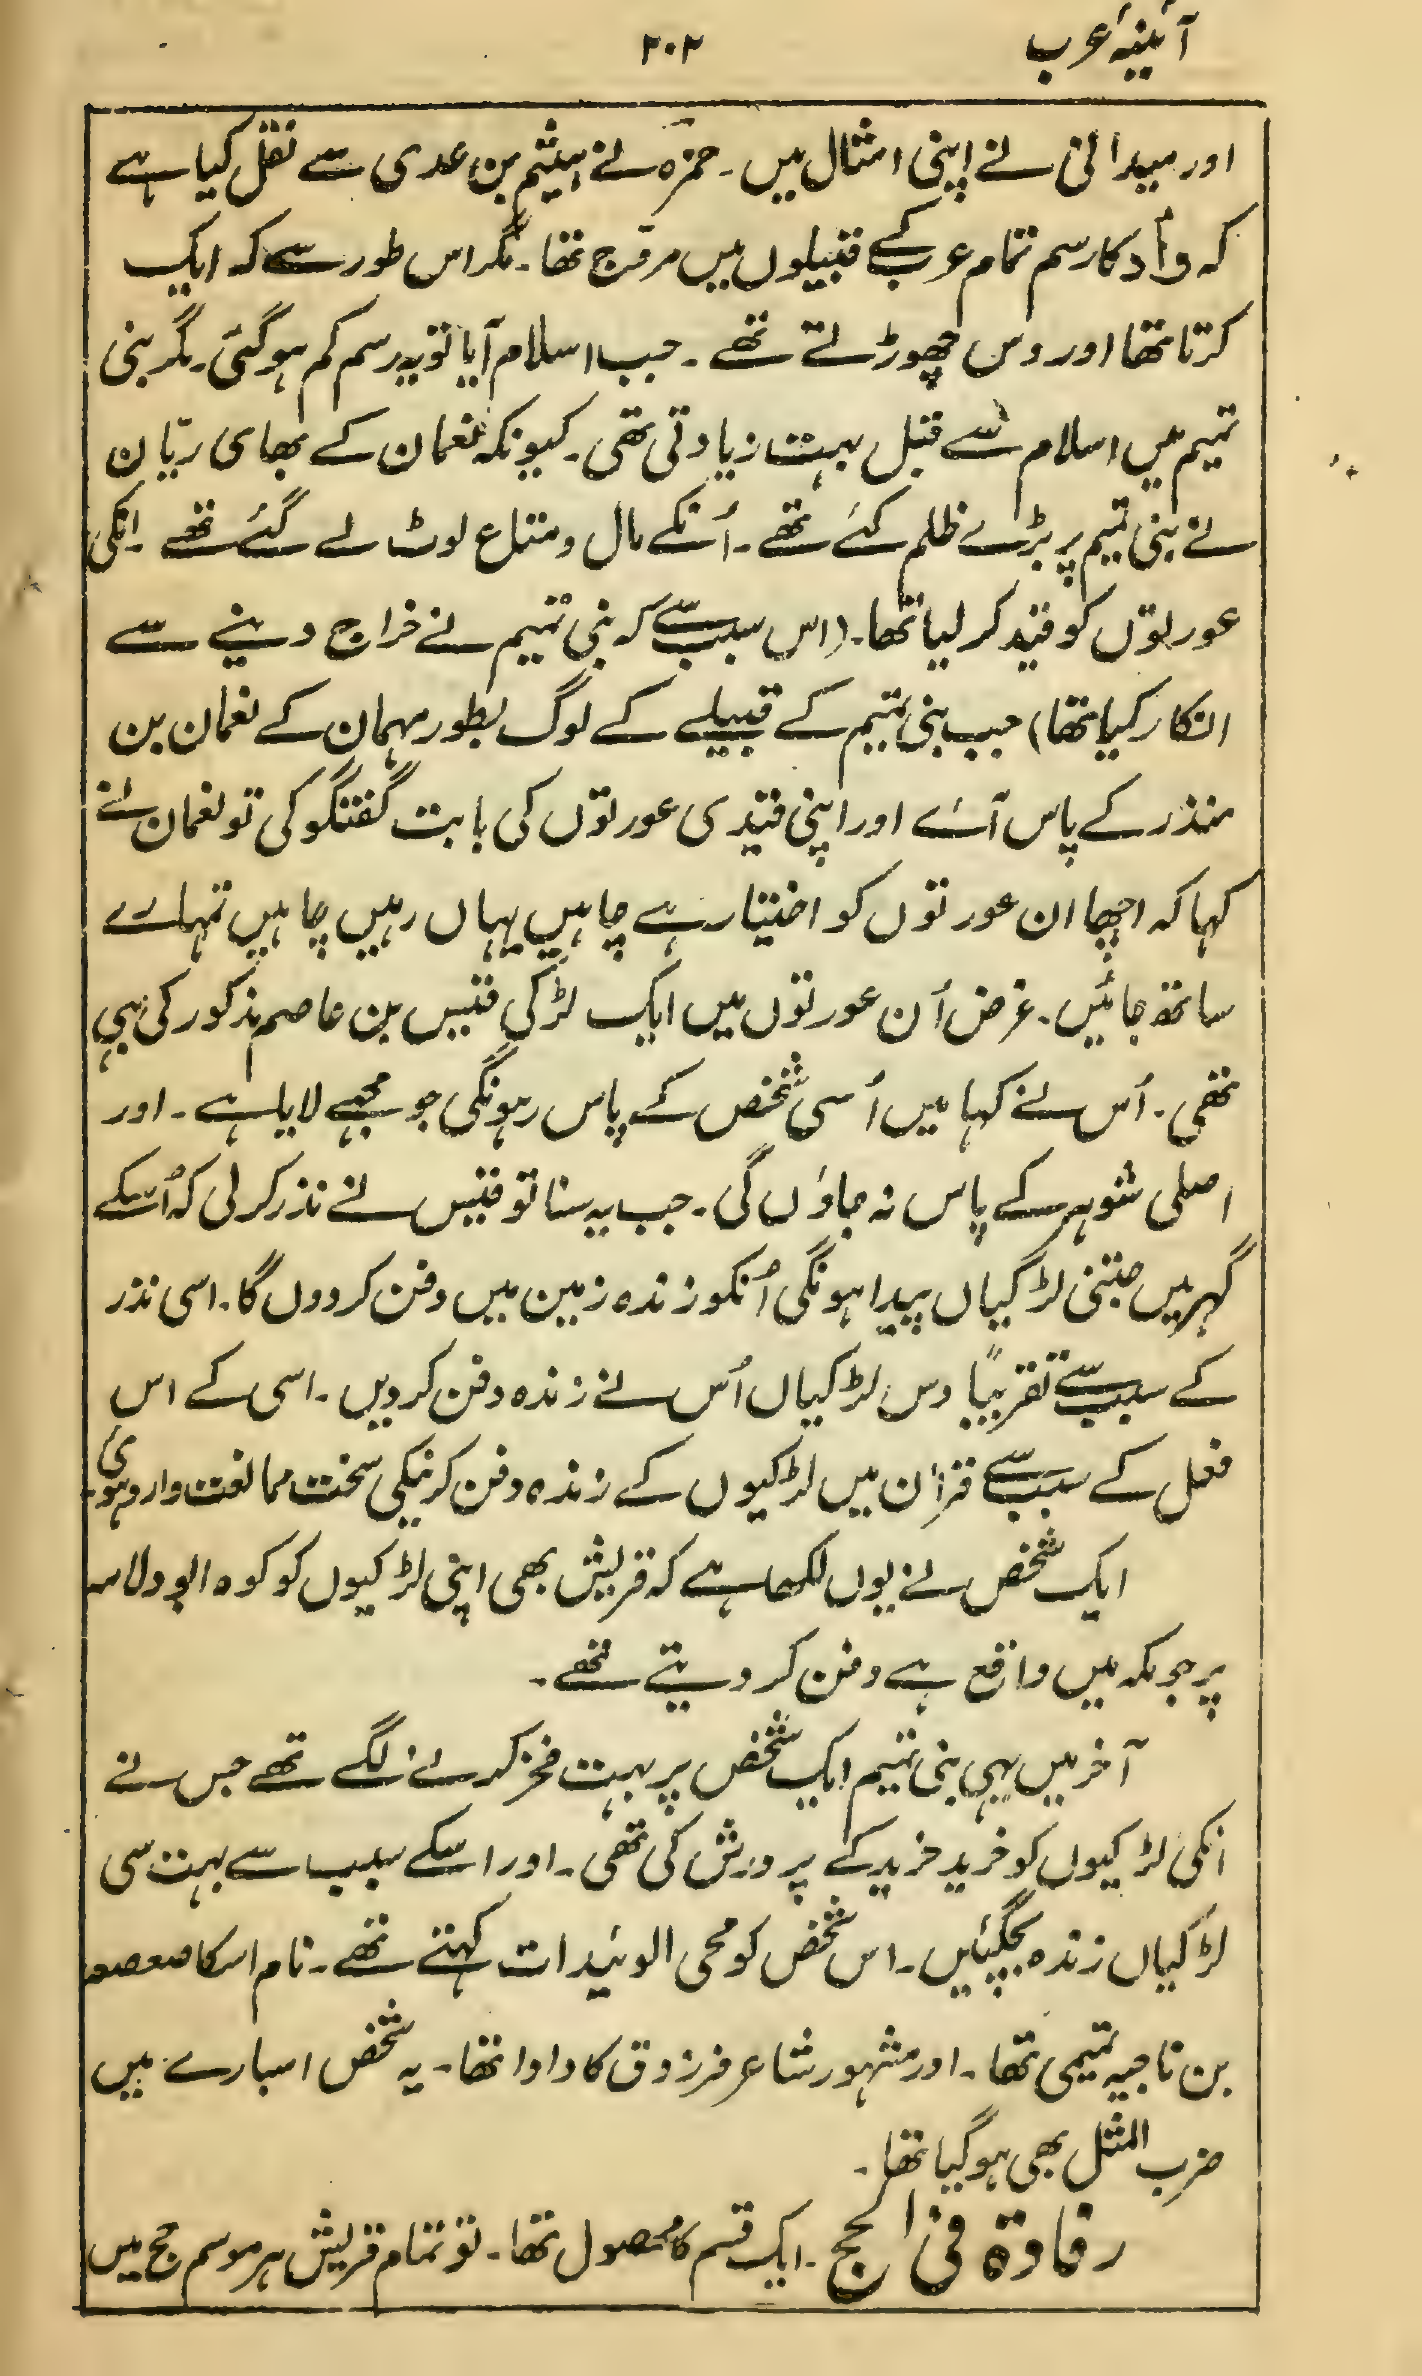 آئینۂ عرب
۲۰۲
اور میدانی نے اپنی امثال میں ۔ حمزہ نے ہیثم بن عدی سے نقل کیا ہے
کہ وأد کا رسم تمام عرب کے قبیلوں میں مروّج تھا ۔ مگر اس طور سے کہ ایک
کرتا تھا اور دس چھوڑتے تھے ۔ جب اسلام آیا تو یہ رسم کم ہوگئی ۔ مگر بنی
تمیم میں اسلام سے قبل بہت زیادتی تھی ۔ کیونکہ نعمان کے بھای ریّان
نے بنی تمیم پر بڑے ظلم کئے تھے ۔ اُنکے مال و متاع لوٹ لے گئے تھے ۔ انکی
عورتوں کو قید کر لیا تھا ۔ (اس سبب سے کہ بنی تمیم نے خراج دینے سے
انکار کیا تھا) جب بنی تمیم کے قبیلے کے لوگ بطور مہمان کے نعمان بن
منذر کے پاس آے اور اپنی قیدی عورتوں کی بابت گفتگو کی تو نعمان نے
کہا کہ اچھا ان عورتوں کو اختیار ہے چاہیں یہاں رہیں چاہیں تمہارے
ساتھ جائیں ۔ غرض اُن عورتوں میں ایک لڑکی قیس بن عاصم مذکور کی بہی
تھی ۔ اُس نے کہا میں اُسی شخص کے پاس رہونگی جو مجھے لایا ہے ۔ اور
اصلی شوہر کے پاس نہ جاؤں گی ۔ جب یہ سنا تو قیس نے نذر کرلی کہ اُسکے
گہر میں جتنی لڑکیاں پیدا ہونگی اُنکو زندہ زمین میں دفن کردوں گا ۔ اسی نذر
کے سبب سے تقریباً دس لڑکیاں اُس نے زندہ دفن کردیں ۔ اسی کے اس
فعل کے سبب سے قرآن میں لڑکیوں کے زندہ دفن کرنیکی سخت ممانعت وارد ہوئی ۔
ایک شخص نے یوں لکھا ہے کہ قریش بھی اپنی لڑکیوں کو کوہ ابو دلامہ
پر جو مکہ میں واقع ہے دفن کر دیتے تھے ۔
آخر میں یہی بنی تمیم ایک شخص پر بہت فخر کرنے لگے تھے جس نے
انکی لڑکیوں کو خرید خرید کے پرورش کی تھی ۔ اور اسکے سبب سے بہت سی
لڑکیاں زندہ بچگئیں ۔ اس شخص کو محی الوئیدات کہتے تھے ۔ نام اسکا صعصعہ
بن ناجیہ تمیمی تھا ۔ اور مشہور شاعر فرزوق کا دادا تھا ۔ یہ شخص اسبارے میں
ضرب المثل بھی ہوگیا تھا ۔
رفادۃ فی الحج ۔ ایک قسم کا محصول تھا ۔ تو تمام قریش ہر موسم حج میں